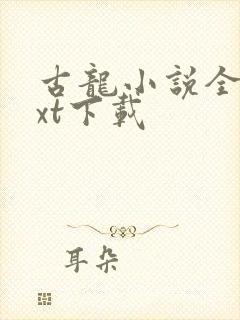 古龍小說全
xt下載
耳朵